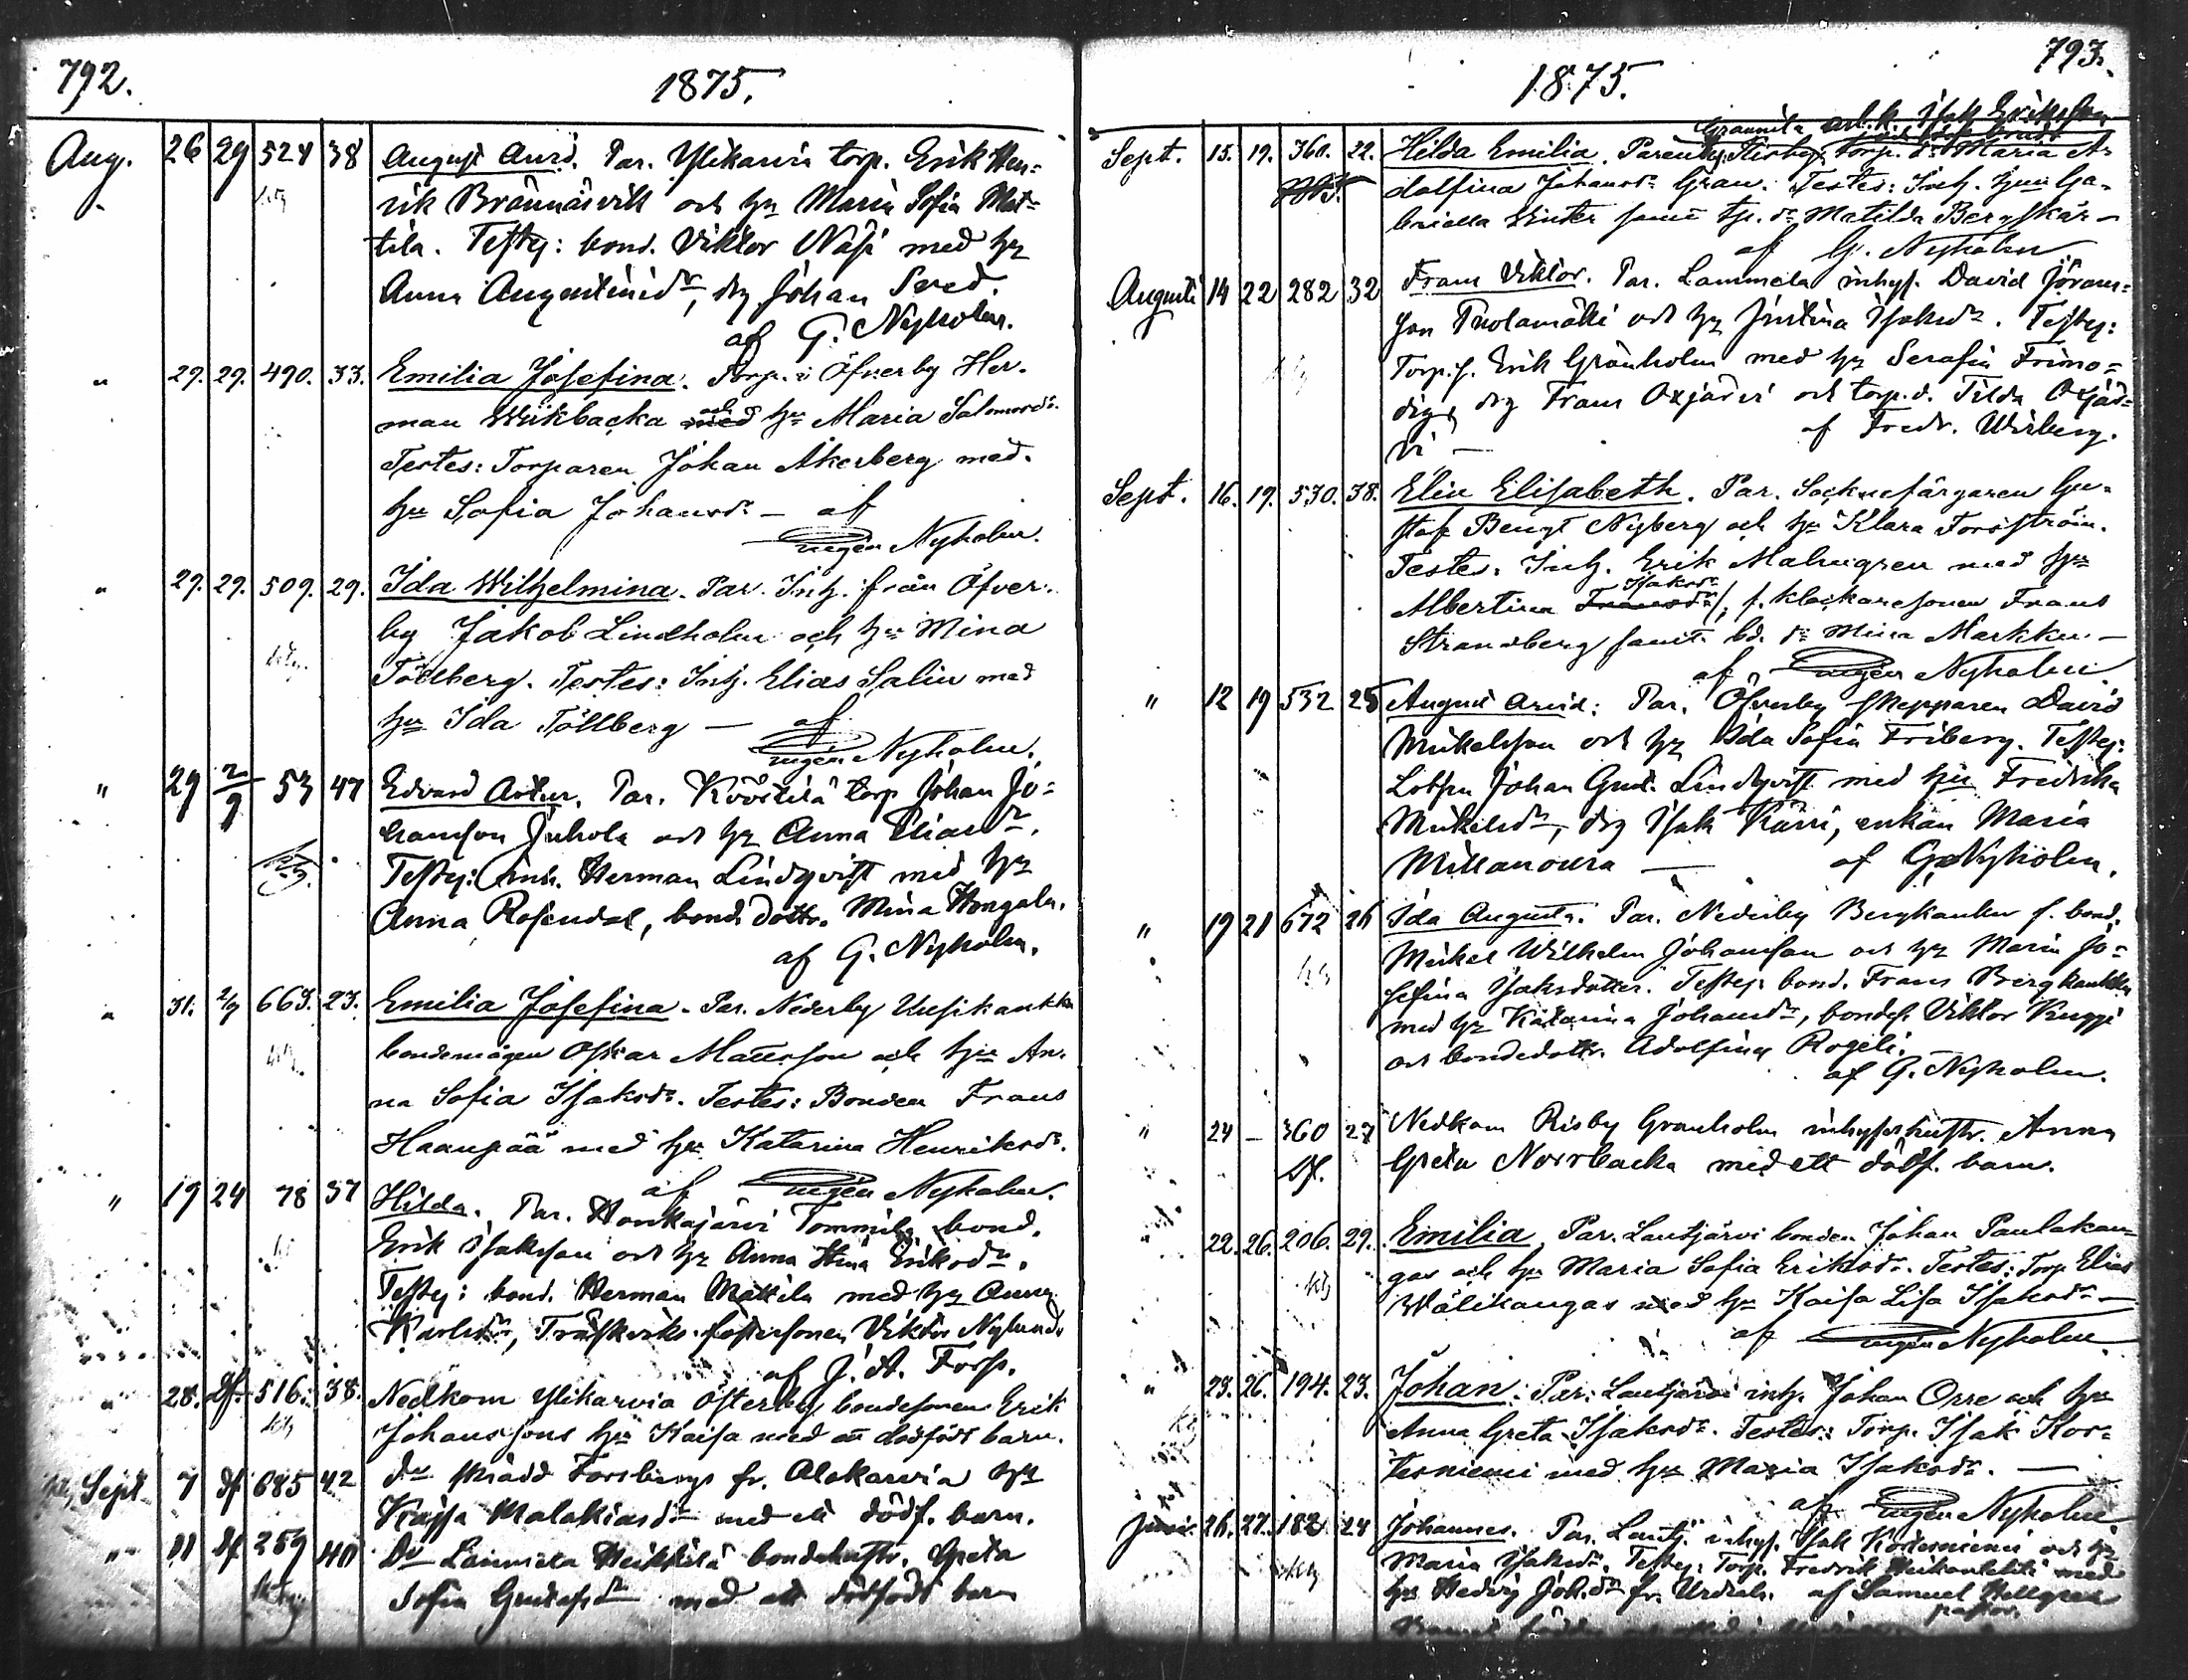 792.
1875.
Aug. 26 29 524 38 August Arvid. Par. Ylikarvia torp. Erik Hen-
rik Brännäsvik och hu Maria Sofia Mat-
tila. Testes: bond. Viktor Näsi med hu
Anna Augustinidr, drg Johan Sved.
af G. Nyholm.
" 29. 29. 490. 33. Emilia Josefina. Torp. i Öfverby Her-
man Wikbacka med och hu Maria Salomonsdr.
Testes: Torparen Johan Åkerberg med
hu Sofia Johansdr — af
Nyholm.
" 29. 29. 509. 29. Ida Wilhelmina. Par. Inh. från Öfver-
by Jakob Lindholm och hu Mina
Töllberg. Testes: Inh. Elias Salin med
hu Ida Töllberg — af
Nyholm.
" 29 2/9 53 47 Edvard Artur. Par. Köörtilä torp Johan Jo-
hansson Juhola och hu Anna Eliasdr.
Testes: inh. Herman Lindqvist med hu
Anna Rosendal, bond. dottr. Mina Hongala.
af G. Nyholm.
" 31. 2/9 663. 23. Emilia Josefina. Par. Nederby Uusikankka
bondemågen Oskar Matsson och hu An-
na Sofia Isaksdr. Testes: Bonden Frans
Haanpää med hu Katarina Henriksdr.
af Nyholm.
" 19 24 78 37 Hilda. Par. Honkajärvi Tommila bond.
Erik Isaksson och hu Anna Stina Eriksdr.
Testes: bond. Herman Mattila med hu Anna
Karlsdr, fostersonen Viktor Nylund.
af J. A. Forss.
" 28. Df. 516. 38. Nedkom Ylikarvia Österby bondesonen Erik
Johanssons hu Kaisa med ett dödfödt barn.
Sept. 7 df 685 42 Do skrädd Forsbergs fr. Alakarvia hu
Kajsa Malakiasdr med ett dödf. barn.
" 11 df 259 40 Do Lammela Heikkilä bondehustr. Greta
Sofia Gustafsdr med ett dödfödt barn
793.
1875.
Grannila Isak Eriksson
Sept. 15. 19. 360. 22. Hilda Emilia. Parentes: Risby torp. dr Maria A-
dolfina Johansdr Gran. Testes: Inh. hun Ga-
briella Winter samt tp. dr Matilda Bergskär —
af G. Nyholm
Augusti 14 22 282 32 Frans Viktor. Par. Lammela inhys. David Jörans-
son Tuolamäki och hu Justina Isaksdr. Testes:
Torp.s. Erik Grönholm med hu Serafia Frimo-
dig, drg Frans Oxjärvi och torp.d. Tilda Oxjär-
vi — af Fredr. Wirberg.
Sept. 16. 19. 530. 38. Elin Elisabeth. Par. Socknefärgaren Gu-
staf Bengt Nyberg och hu Klara Forsström.
Testes: Inh. Erik Malmgren med hu
Albertina Fransdr Isaksdr, f. klockaresonen Frans
Strandberg samt bd. dr Mina Markku —
af Nyholm
" 12 19 532 25 August Arvid: Par. Öfverby skepparen David
Mickelsson och hu Ida Sofia Friberg. Testes:
Lotsen Johan Gust. Lindqvist med hu Fredrika
Mickelsdr, drg Isak Kärri, enkan Maria
Millanoura — af G. Nyholm.
" 19 21 672 26 Ida Augusta. Par. Nederby Bergkankka f. bond.
Mickel Wilhelm Johansson och hu Maria Jo-
sefina Isaksdotter. Testes: bond. Frans Bergkankka
med hu Katarina Johansdr, bondes. Viktor Kuppi
och bondedottr. Adolfina Rogeli.
af G. Nyholm.
" 24 — 360 27 Nedkom Risby Granholm inhyseshustr. Anna
Df. Greta Norrbacka med ett dödf. barn.
22. 26. 206. 29. Emilia. Par. Lautjärvi bonden Johan Paulakan-
gas och hu Maria Sofia Eriksdr. Testes: Torp Elias
Wälikangas med hu Kaisa Lisa Isaksdr —
af Nyholm
" 23. 26. 194. 23. Johan: Par: Lautjärvi inh. Johan Orre och hu
Anna Greta Isaksdr. Testes: Torp. Isak Kor-
tesniemi med hu Maria Isaksdr. —
af Nyholm
Juni 26. 27. 182. 24 Johannes. Par. Lautj. inhys. Isak Kortesniemi och hu
Maria Isaksdr. Testes: Torp. Fredrik med
hu Hedvig Joh.dr fr. af Samuel Hellgren
pastor.